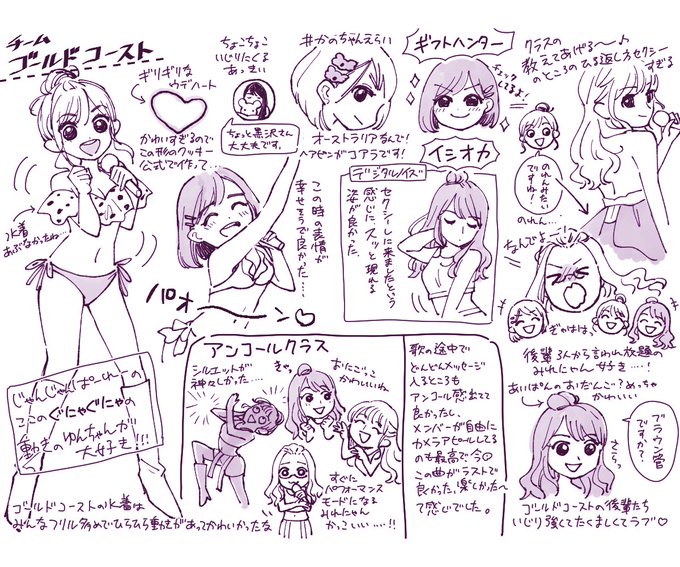 チーム
ゴールドコースト
ギリギリな
ウデハート
かわいすぎるので
この形のクッキー
公式で作って…
水着
あぶなかったね…
じゃんじゃんぱーれーの
ここのぐにゃぐにゃの
動きのゆんちゃんが
大好き!!!
ゴールドコーストの水着は
みんなフリル多めでひらひら重ねがあってかわいかったな
ちょこちょこ
いじりにくる
あっさい
ちょっと黒沢さん
大丈夫です。
この時の表情が
幸せそうで良かった…
パオーン♡
#かのちゃんえらい
オーストラリアなんで!
ヘアピンがコアラです!
ギフトハンター
チェック
してるよ!
イシオカ
デジタルノイズ
セクシーしに来ましたという
感じに、スッと現れる
姿が良かった
クラスの
教えてあげる〜♪
のところのひる返し方セクシー
すぎる
のれんみたい
ですね!
のれん…
なんでよー!
ぎゃはは
後輩3人から言われ放題の
みれにゃん好き…!
あいぱんのおだんごめっちゃ
かわいい
ブラウン管
ですか?
さらっ
ゴールドコーストの後輩たち
いじり強くてたくましくてラブ♡
アンコールクラス
シルエットが
神々しかった…
きゃっ
おにごっこ
かわいいね
すぐに
パフォーマンス
モードになる
みれにゃん
かっこいい…!!
歌の途中で
どんどんメッセージ
入るところも
アンコール感出てて
良かったし、
メンバーが自由に
カメラアピールしてる
のも最高で今回
この曲がラストで
良かった、楽しかった〜
て感じでした。